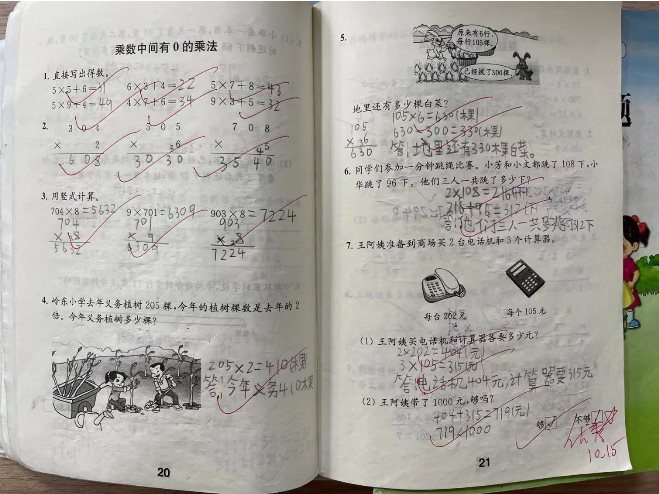 乘数中间有0的乘法
1. 直接写出得数。
5×5+6=31 6×3+4=22 5×7+8=43
5×9+4=49 4×7+6=34 9×3+5=32
2.
3 0 4 5 0 5 7 0 8
× 2 × 6 × 5
6 0 8 3 0 3 0 3 5 4 0
3. 用竖式计算。
704×8=5632 9×701=6309 903×8=7224
704 701 903
× 8 × 9 × 8
5632 6309 7224
4. 岭东小学去年义务植树205棵,今年的植树棵数是去年的2
倍。今年义务植树多少棵?
205×2=410(棵)
答:今年义务410棵
20
5.
原来有6行,
每行105棵。
已经拔了300棵。
地里还有多少棵白菜?
105×6=630(棵)
105
× 6
630
630-300=330(棵)
答:地里还有330棵白菜。
6. 同学们参加一分钟跳绳比赛。小芳和小文都跳了108下,小
华跳了96下。他们三人一共跳了多少下?
2×108=216(下)
7. 王阿姨准备到商场买2台电话机和3个计算器。
每台202元 每个105元
(1) 王阿姨买电话机和计算器各要多少元?
2×202=404(元)
3×105=315(元)
答:电话机404元,计算器要315元
(2) 王阿姨带了1000元,够吗?
404+315=719(元)
719<1000
够 不够
10.15
21